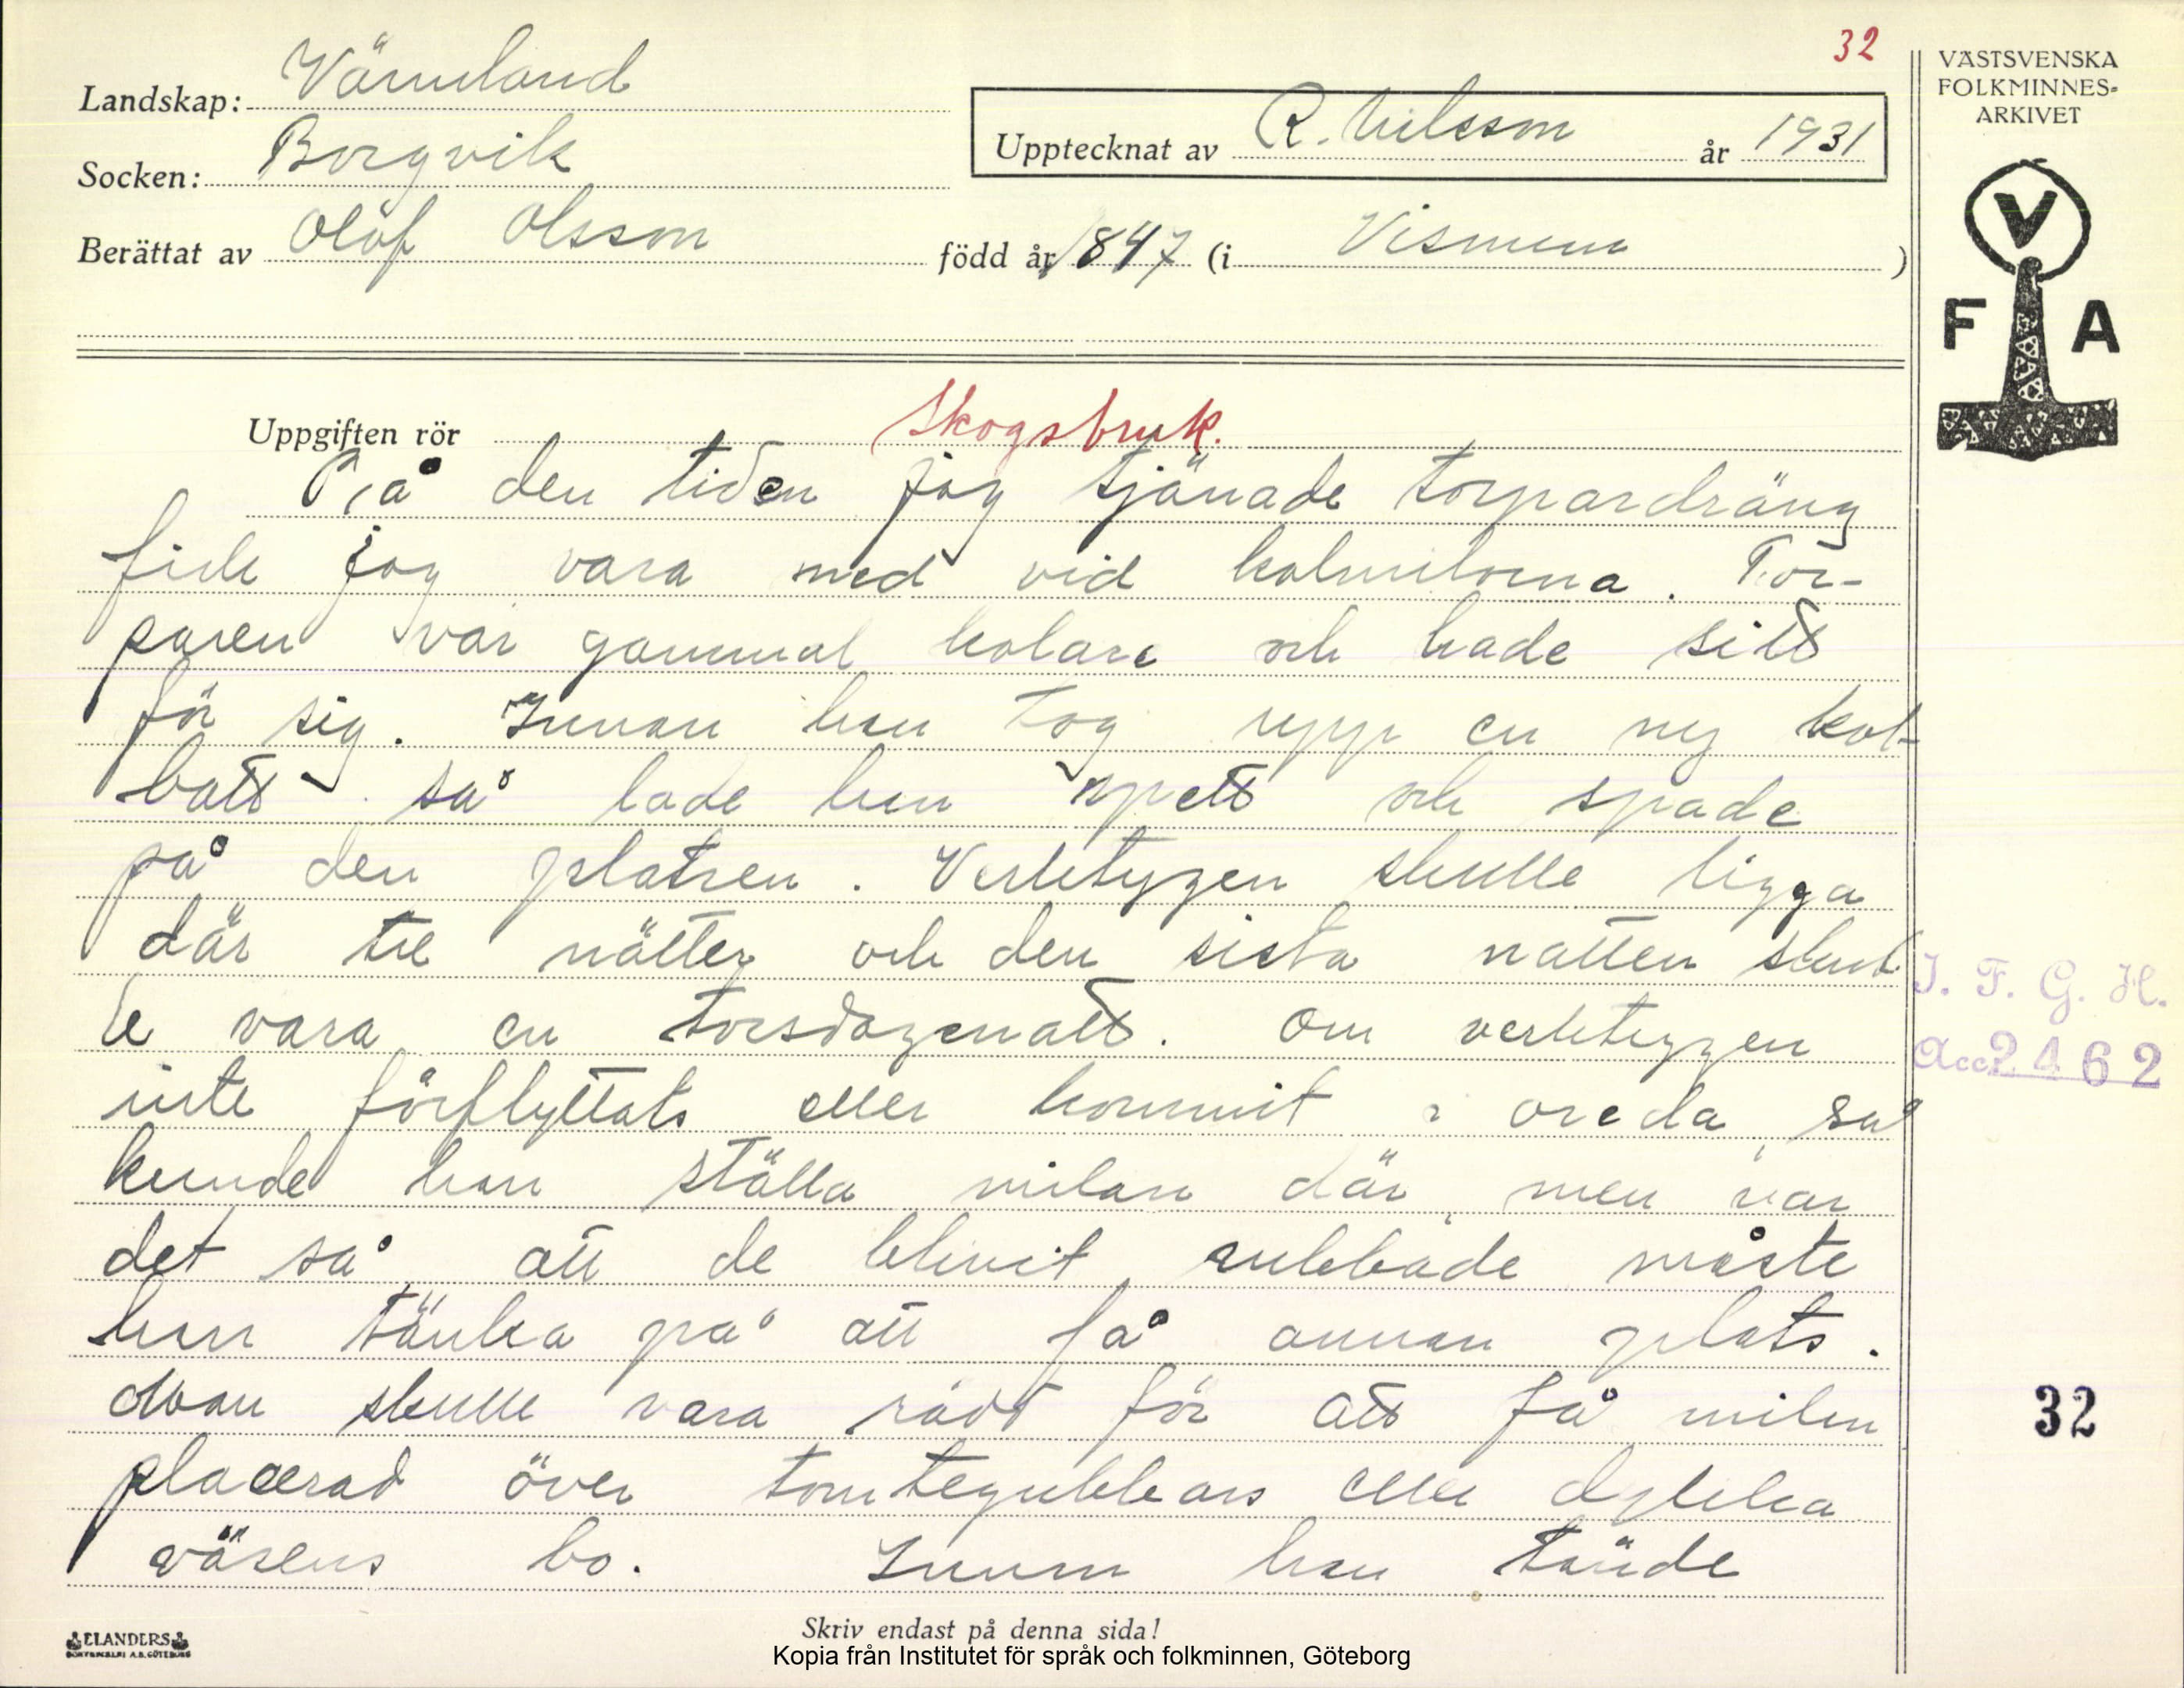 32
VÄSTSVENSKA
FOLKMINNES-
ARKIVET
Landskap: Värmland
Upptecknat av R. Nilsson år 1931
Socken: Borgvik
Berättat av Olof Olsson född år 1847 (i Vismum)
V
F A
Uppgiften rör Skogsbruk.
På den tiden jag tjänade torpardräng
fick jag vara med vid kolmilorna. Tor-
paren var gammal kolare och hade sitt
för sig. Innan han tog upp en ny kol-
batt så lade han spett och spade
på den platsen. Verktygen skulle ligga
där tre nätter och den sista natten skul
le vara en torsdagenatt. Om verktygen
inte förflyttats eller kommit i oreda, så
kunde han ställa milan där, men var
det så, att de blivit rubbade måste
han tänka på att få annan plats.
Man skulle vara rädd för att få milan
placerad över tomtegubbars eller dylika
väsens bo. Innan han tände
I. F. G. H.
Acc 2462
32
ELANDERS
BOKTRYCKERI A.B. GÖTEBORG
Skriv endast på denna sida!
Kopia från Institutet för språk och folkminnen, Göteborg